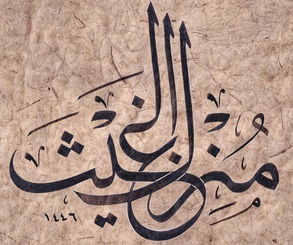 مُنزل الغيث
١٤٤٦